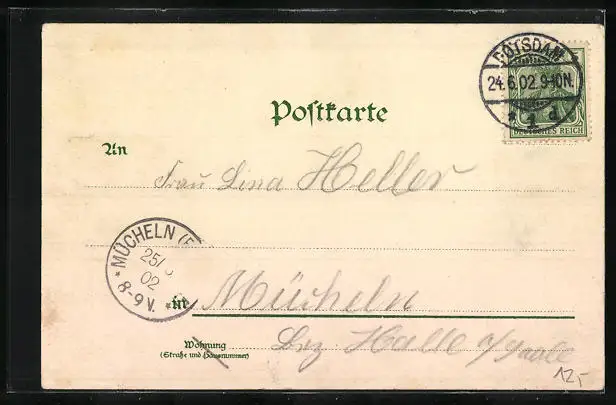 POTSDAM
24.6.02.9-10N.
* 1 d
DEUTSCHES REICH
Postkarte
An
Frau Lina Heller
MÜCHELN
25/
02
8-9V.
in Mücheln
Wohnung
(Straße und Hausnummer)
Bez Halle a/Saale
12,-